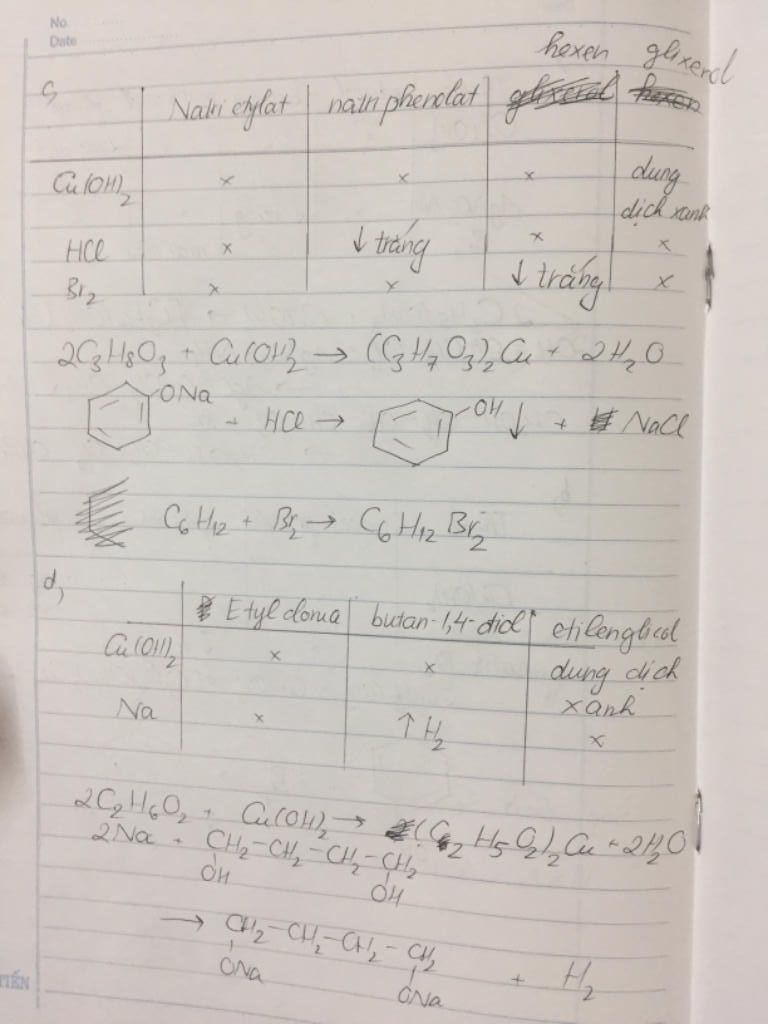 No.
Date
hexen glixerol
c, Natri etylat natri phenolat glixerol hexen
Cu(OH)₂ x x x dung dịch xanh
HCl x ↓ trắng x x
Br₂ x x ↓ trắng x
2C₃H₈O₃ + Cu(OH)₂ → (C₃H₇O₃)₂Cu + 2H₂O
ONa + HCl → OH ↓ + NaCl
C₆H₁₂ + Br₂ → C₆H₁₂Br₂
d, Etyl clorua butan-1,4-diol etilenglicol
Cu(OH)₂ x x dung dịch xanh
Na x ↑ H₂ x
2C₂H₆O₂ + Cu(OH)₂ → (C₂H₅O₂)₂Cu + 2H₂O
2Na + CH₂-CH₂-CH₂-CH₂
OH OH
→ CH₂-CH₂-CH₂-CH₂ + H₂
ONa ONa
TIẾN